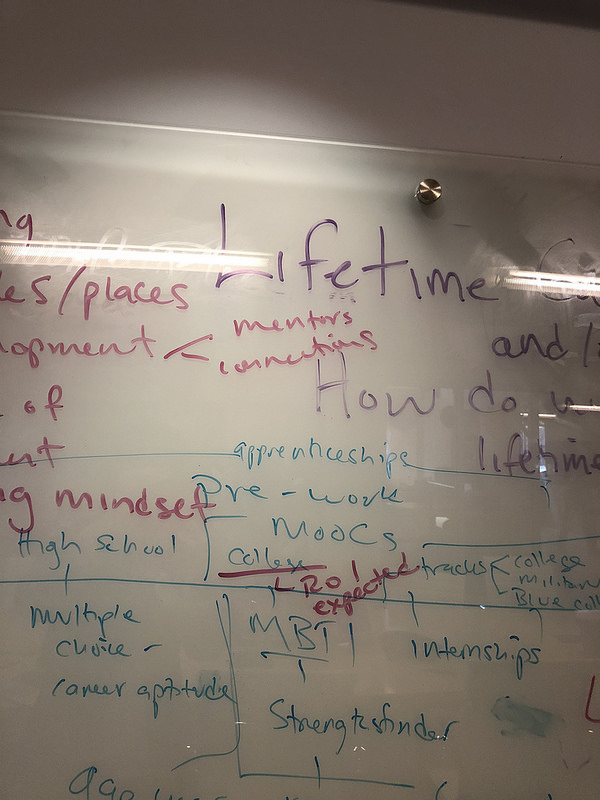 Lifetime
and
How do
lifetime
ng
es/places
opment < mentors
connections
of
ent
ng mindset
apprenticeships
Pre-work
MOOCs
High School
college
ROI
expected
tracks < college
militar
Blue coll
multiple
choice -
career aptitude
MBTI
internships
Strengthsfinder
age